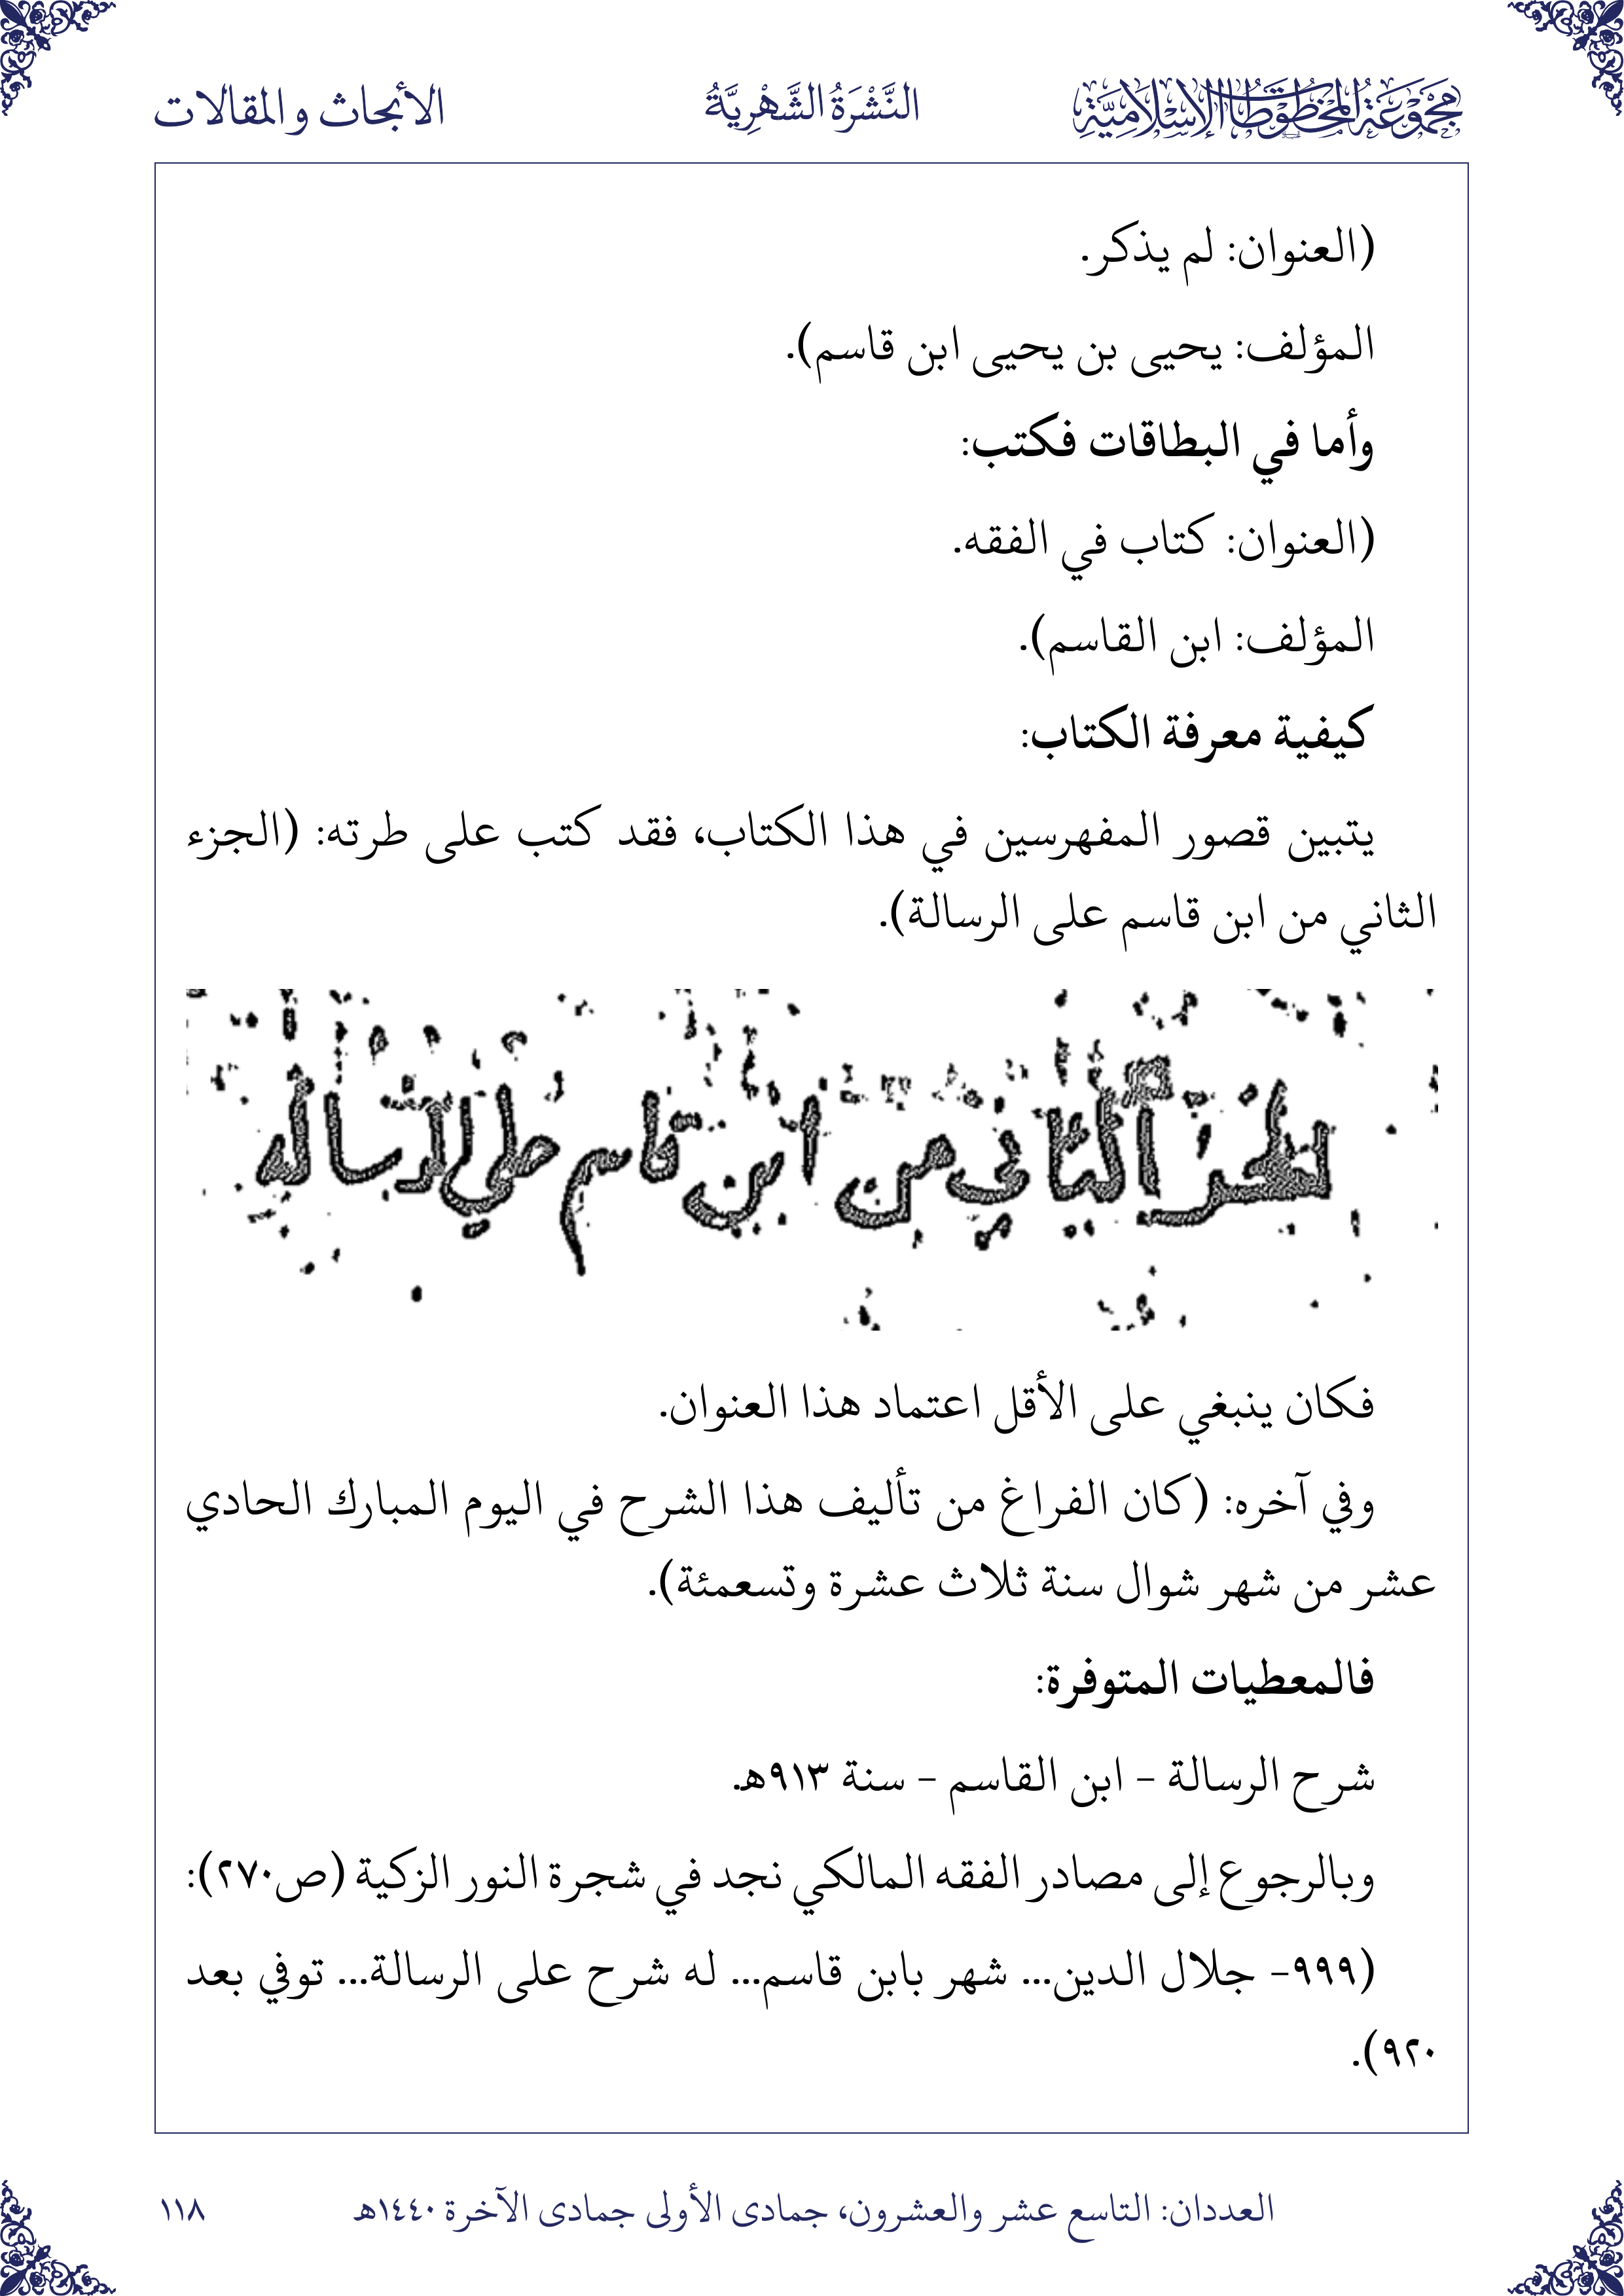 مجموعة المخطوطات الإسلامية
النَّشْرَةُ الشَّهْرِيَّةُ
الأبحاث والمقالات
(العنوان: لم يذكر.
المؤلف: يحيى بن يحيى ابن قاسم).
وأما في البطاقات فكتب:
(العنوان: كتاب في الفقه.
المؤلف: ابن القاسم).
كيفية معرفة الكتاب:
يتبين قصور المفهرسين في هذا الكتاب، فقد كتب على طرته: (الجزء
الثاني من ابن قاسم على الرسالة).
الجزء الثاني من ابن قاسم على الرساله
فكان ينبغي على الأقل اعتماد هذا العنوان.
وفي آخره: (كان الفراغ من تأليف هذا الشرح في اليوم المبارك الحادي
عشر من شهر شوال سنة ثلاث عشرة وتسعمئة).
فالمعطيات المتوفرة:
شرح الرسالة – ابن القاسم – سنة ٩١٣هـ.
وبالرجوع إلى مصادر الفقه المالكي نجد في شجرة النور الزكية (ص٢٧٠):
(٩٩٩- جلال الدين... شهر بابن قاسم... له شرح على الرسالة... توفي بعد
٩٢٠).
العددان: التاسع عشر والعشرون، جمادى الأولى جمادى الآخرة ١٤٤٠هـ
١١٨